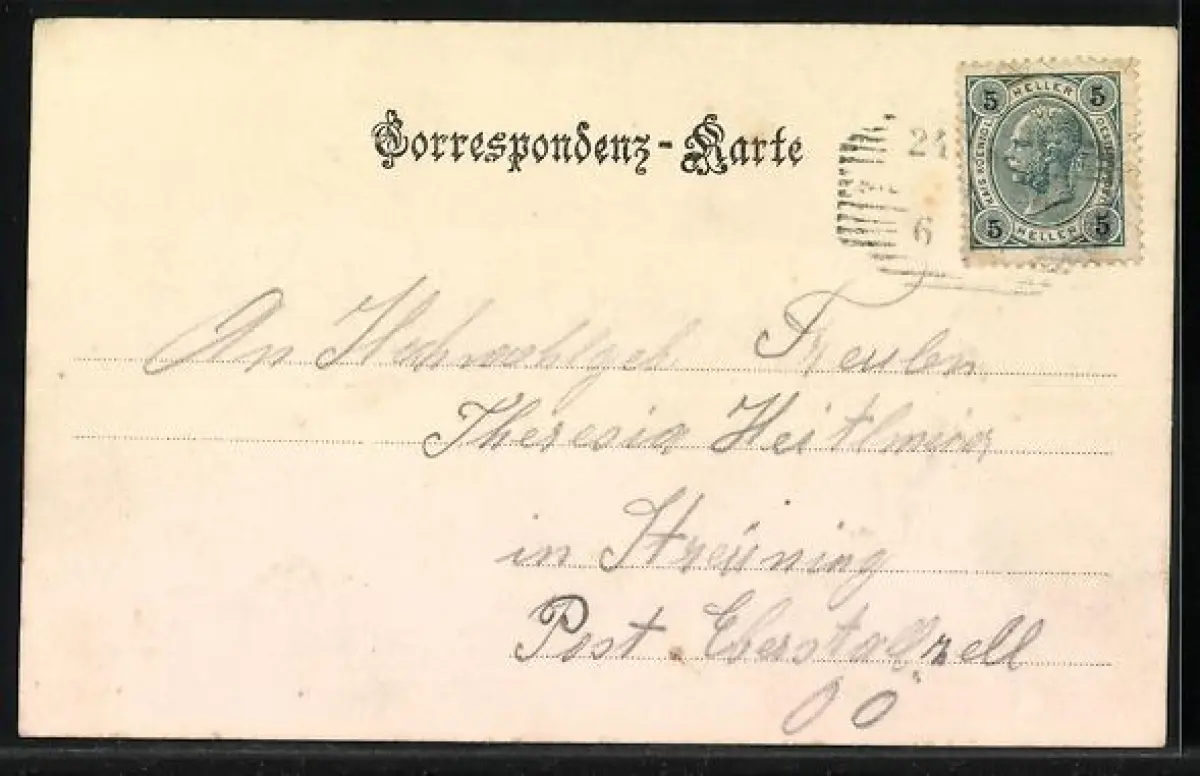 Correspondenz-Karte
5 HELLER 5
5 HELLER 5
24
6
An Hochwohlgeb Freulen
Theresia
in
Post Eberstallzell
OÖ